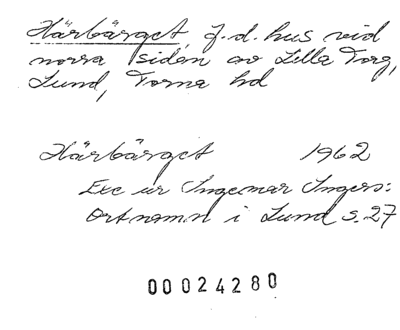 Härbärget, f.d. hus vid
norra sidan av Lilla Torg,
Lund, Torna hd
Härbärget 1962
Exc ur Ingemar Ingers:
Ortnamn i Lund s. 27
00024280